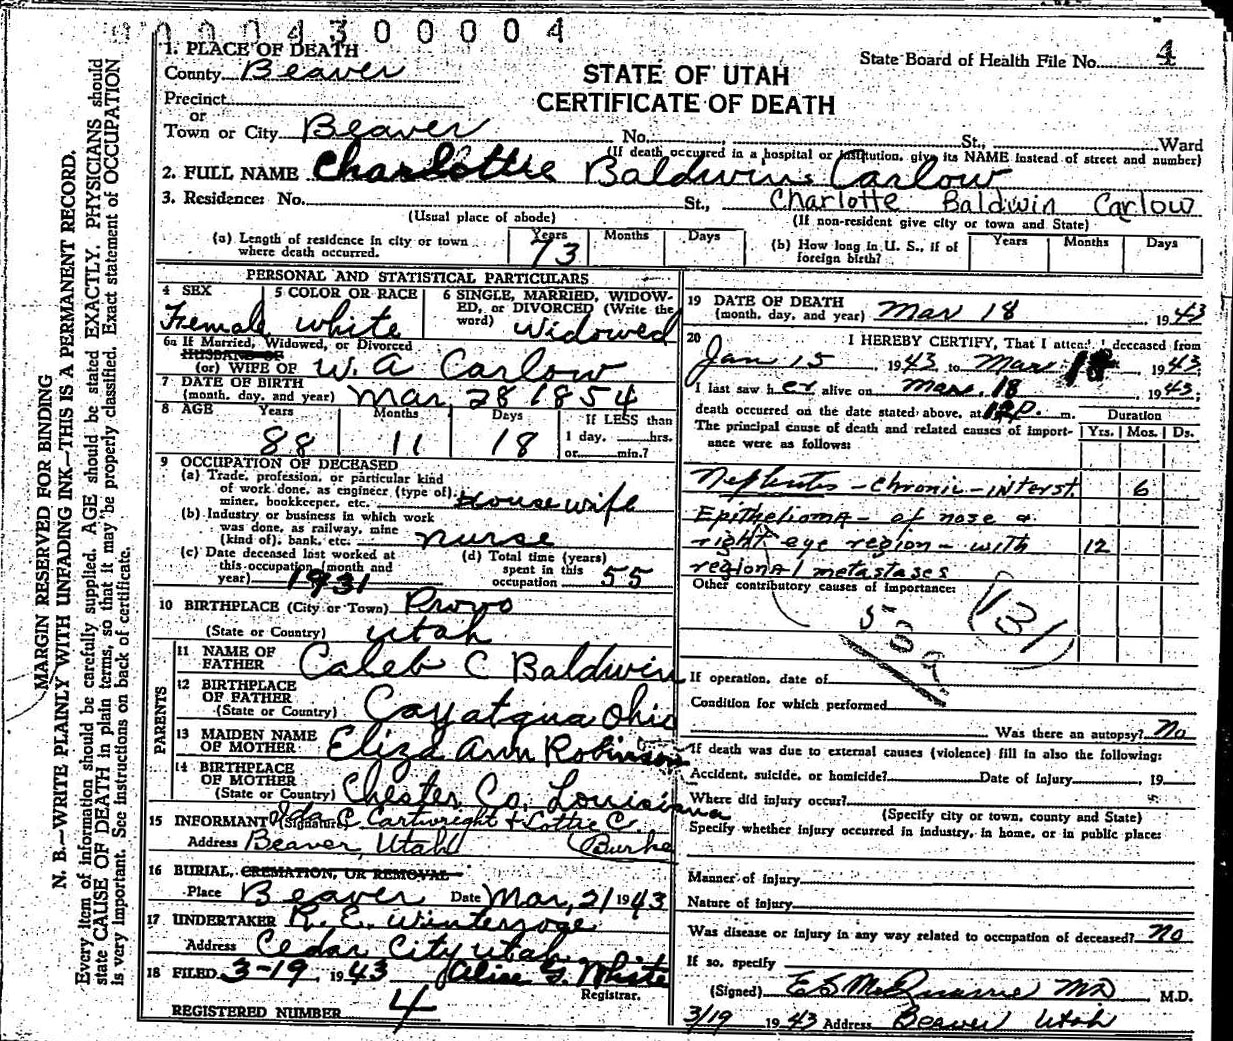 00004300004
1. PLACE OF DEATH
County Beaver
State Board of Health File No. 4
STATE OF UTAH
CERTIFICATE OF DEATH
Precinct
or
Town or City Beaver No. St., Ward
(If death occurred in a hospital or institution, give its NAME instead of street and number)
2. FULL NAME Charlottie Baldwin Carlow
3. Residence: No. St., Charlotte Baldwin Carlow
(Usual place of abode) (If non-resident give city or town and State)
(a) Length of residence in city or town where death occurred. Years 73 Months Days
(b) How long in U. S., if of foreign birth? Years Months Days
PERSONAL AND STATISTICAL PARTICULARS
4 SEX Female
5 COLOR OR RACE white
6 SINGLE, MARRIED, WIDOWED, or DIVORCED (Write the word) Widowed
6a If Married, Widowed, or Divorced
HUSBAND OF
(or) WIFE OF W. A Carlow
7 DATE OF BIRTH
(month, day, and year) Mar, 28 1854
8 AGE Years Months Days If LESS than
88 11 18 1 day, hrs.
or min.?
9 OCCUPATION OF DECEASED
(a) Trade, profession, or particular kind
of work done, as engineer (type of)
miner, bookkeeper, etc. Housewife
(b) Industry or business in which work
was done, as railway, mine
(kind of), bank, etc. nurse
(c) Date deceased last worked at
this occupation (month and
year) 1931
(d) Total time (years)
spent in this
occupation 55
10 BIRTHPLACE (City or Town) Provo
(State or Country) Utah
PARENTS
11 NAME OF
FATHER Caleb C Baldwin
12 BIRTHPLACE
OF FATHER
(State or Country) Cayatqua Ohio
13 MAIDEN NAME
OF MOTHER Eliza Ann Robinson
14 BIRTHPLACE
OF MOTHER
(State or Country) Chester Co, Louisiana
15 INFORMANT (Signature) Ida C Cartwright & Lottie C.
Address Beaver, Utah Burke
16 BURIAL, CREMATION, OR REMOVAL
Place Beaver Date Mar, 21 1943
17 UNDERTAKER R. E. Winterrose
Address Cedar City Utah
18 FILED 3-19 1943 Alice G. White
Registrar.
REGISTERED NUMBER 4
19 DATE OF DEATH
(month, day, and year) Mar 18 1943
20 I HEREBY CERTIFY, That I attend deceased from
Jan 15, 1943 to Mar 18, 1943
I last saw her alive on Mar. 18, 1943;
death occurred on the date stated above, at 12 p. m.
Duration
The principal cause of death and related causes of importance were as follows:
Yrs. Mos. Ds.
Nephritis - chronic - interst. 6
Epithelioma - of nose &
right eye region - with 12
regional metastases
Other contributory causes of importance:
131
If operation, date of
Condition for which performed
Was there an autopsy? No
If death was due to external causes (violence) fill in also the following:
Accident, suicide, or homicide? Date of Injury , 19
Where did injury occur?
(Specify city or town, county and State)
Specify whether injury occurred in industry, in home, or in public place:
Manner of injury
Nature of injury
Was disease or injury in any way related to occupation of deceased? No
If so, specify
(Signed) MD M.D.
3/19 1943 Address Beaver Utah
MARGIN RESERVED FOR BINDING
N. B.—WRITE PLAINLY WITH UNFADING INK—THIS IS A PERMANENT RECORD.
Every item of information should be carefully supplied. AGE should be stated EXACTLY. PHYSICIANS should
state CAUSE OF DEATH in plain terms, so that it may be properly classified. Exact statement of OCCUPATION
is very important. See instructions on back of certificate.